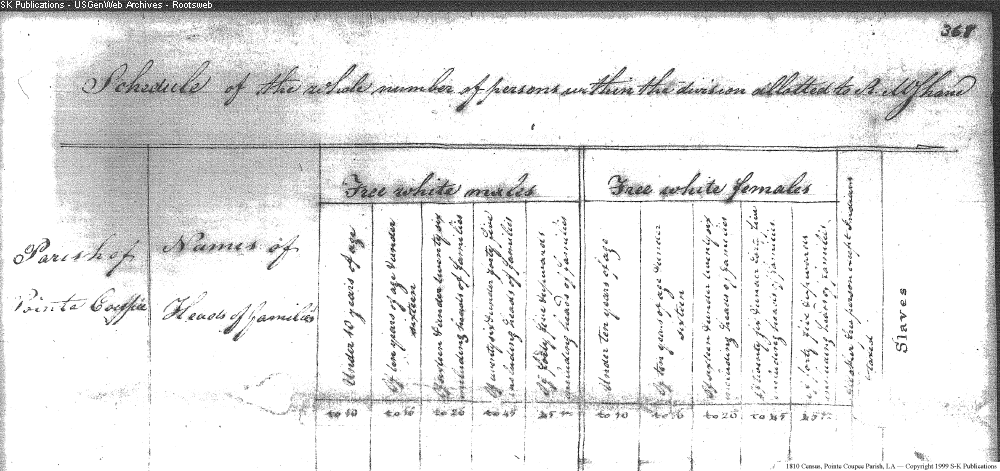 SK Publications - USGenWeb Archives - Rootsweb
368
Schedule of the whole number of persons within the division allotted to R.
Free white males
Free white females
Parish of
Pointe Coupée
Names of
Heads of families
Under 10 years of age
Of ten years of age & under
sixteen
Of sixteen & under twenty six
including heads of families
Of twenty six & under forty five
including heads of families
Of forty five & upwards
including heads of families
Under ten years of age
Of ten years of age & under
sixteen
Of sixteen & under twenty six
including heads of families
Of twenty six & under forty five
including heads of families
Of forty five & upwards
including heads of families
all other free persons except Indians
taxed
Slaves
to 10
to 16
to 26
to 45
45 &c
to 10
to 16
to 26
to 45
45 &c
1810 Census, Pointe Coupee Parish, LA — Copyright 1999 S-K Publications